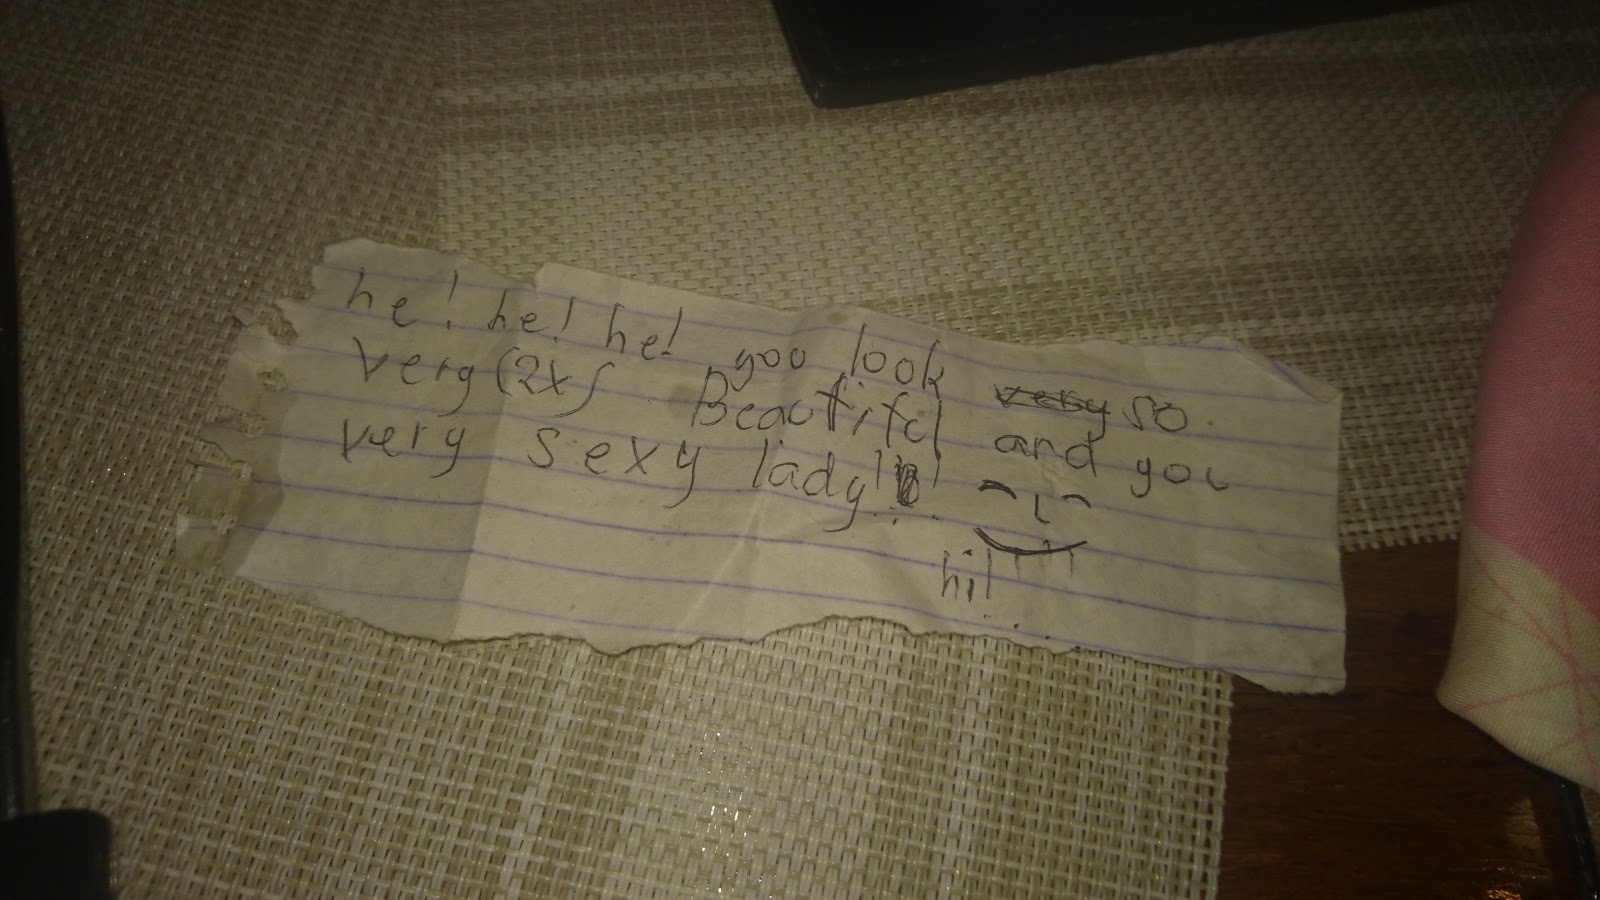 he! he! he! you look very so
very (2x) Beautifcl and you
very sexy lady!!!
hi!